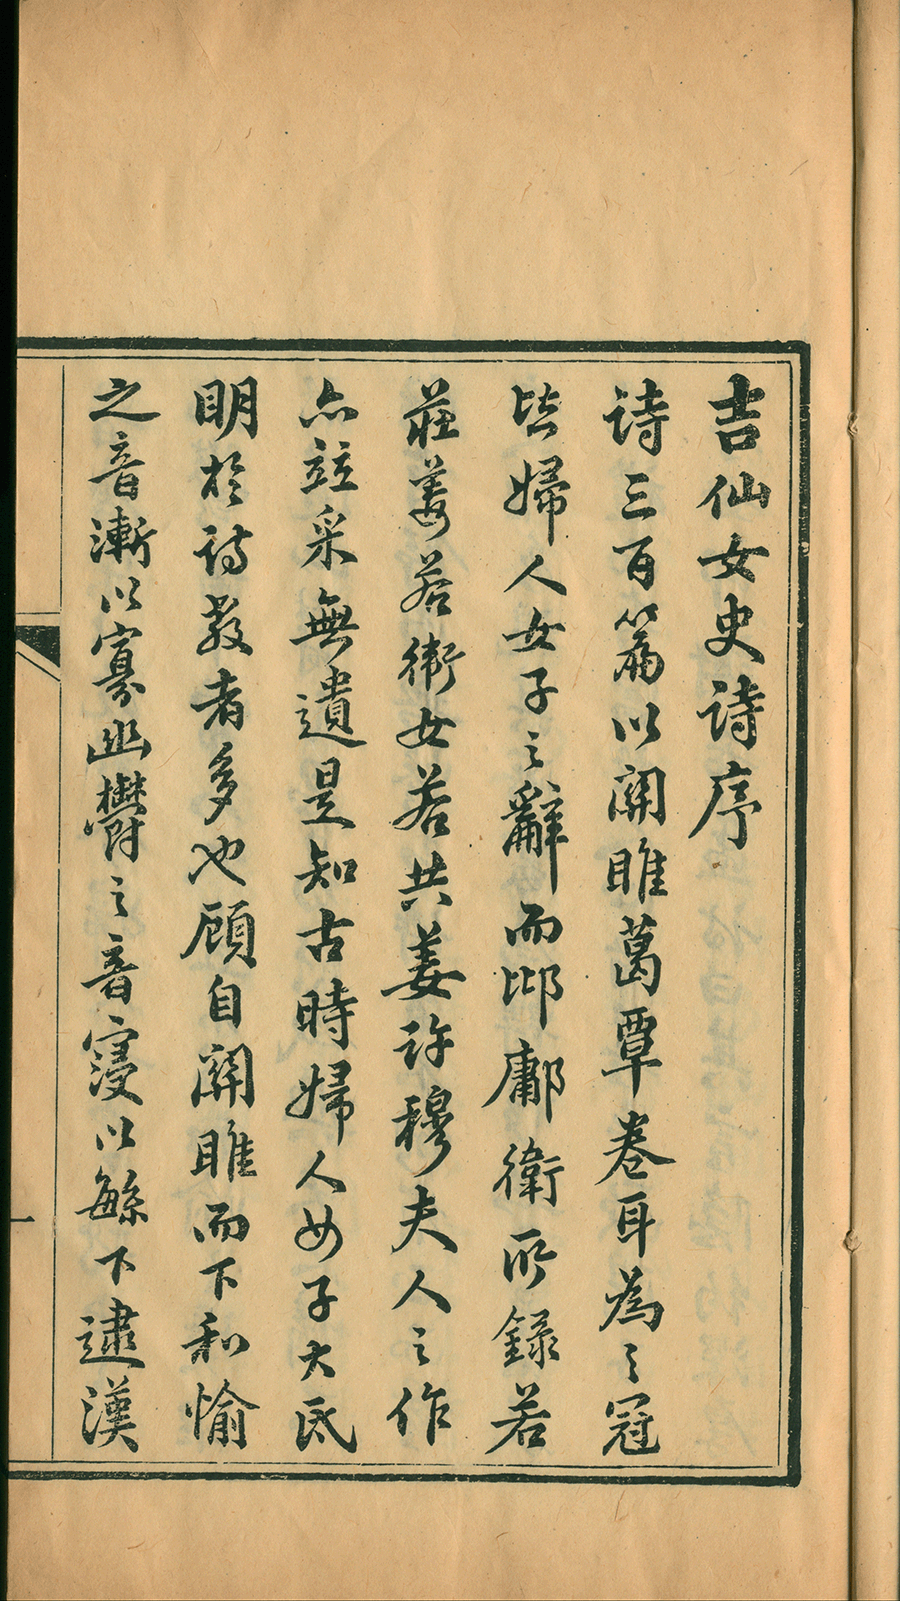 吉仙女史詩序
詩三百篇以關雎葛覃卷耳為之冠
皆婦人女子之辭而邶鄘衛所錄若
莊姜若衛女若共姜許穆夫人之作
亦竝采無遺是知古時婦人女子大氐
明於詩教者多也顧自關雎而下和愉
之音漸以寡幽鬱之音寖以繇下逮漢
一